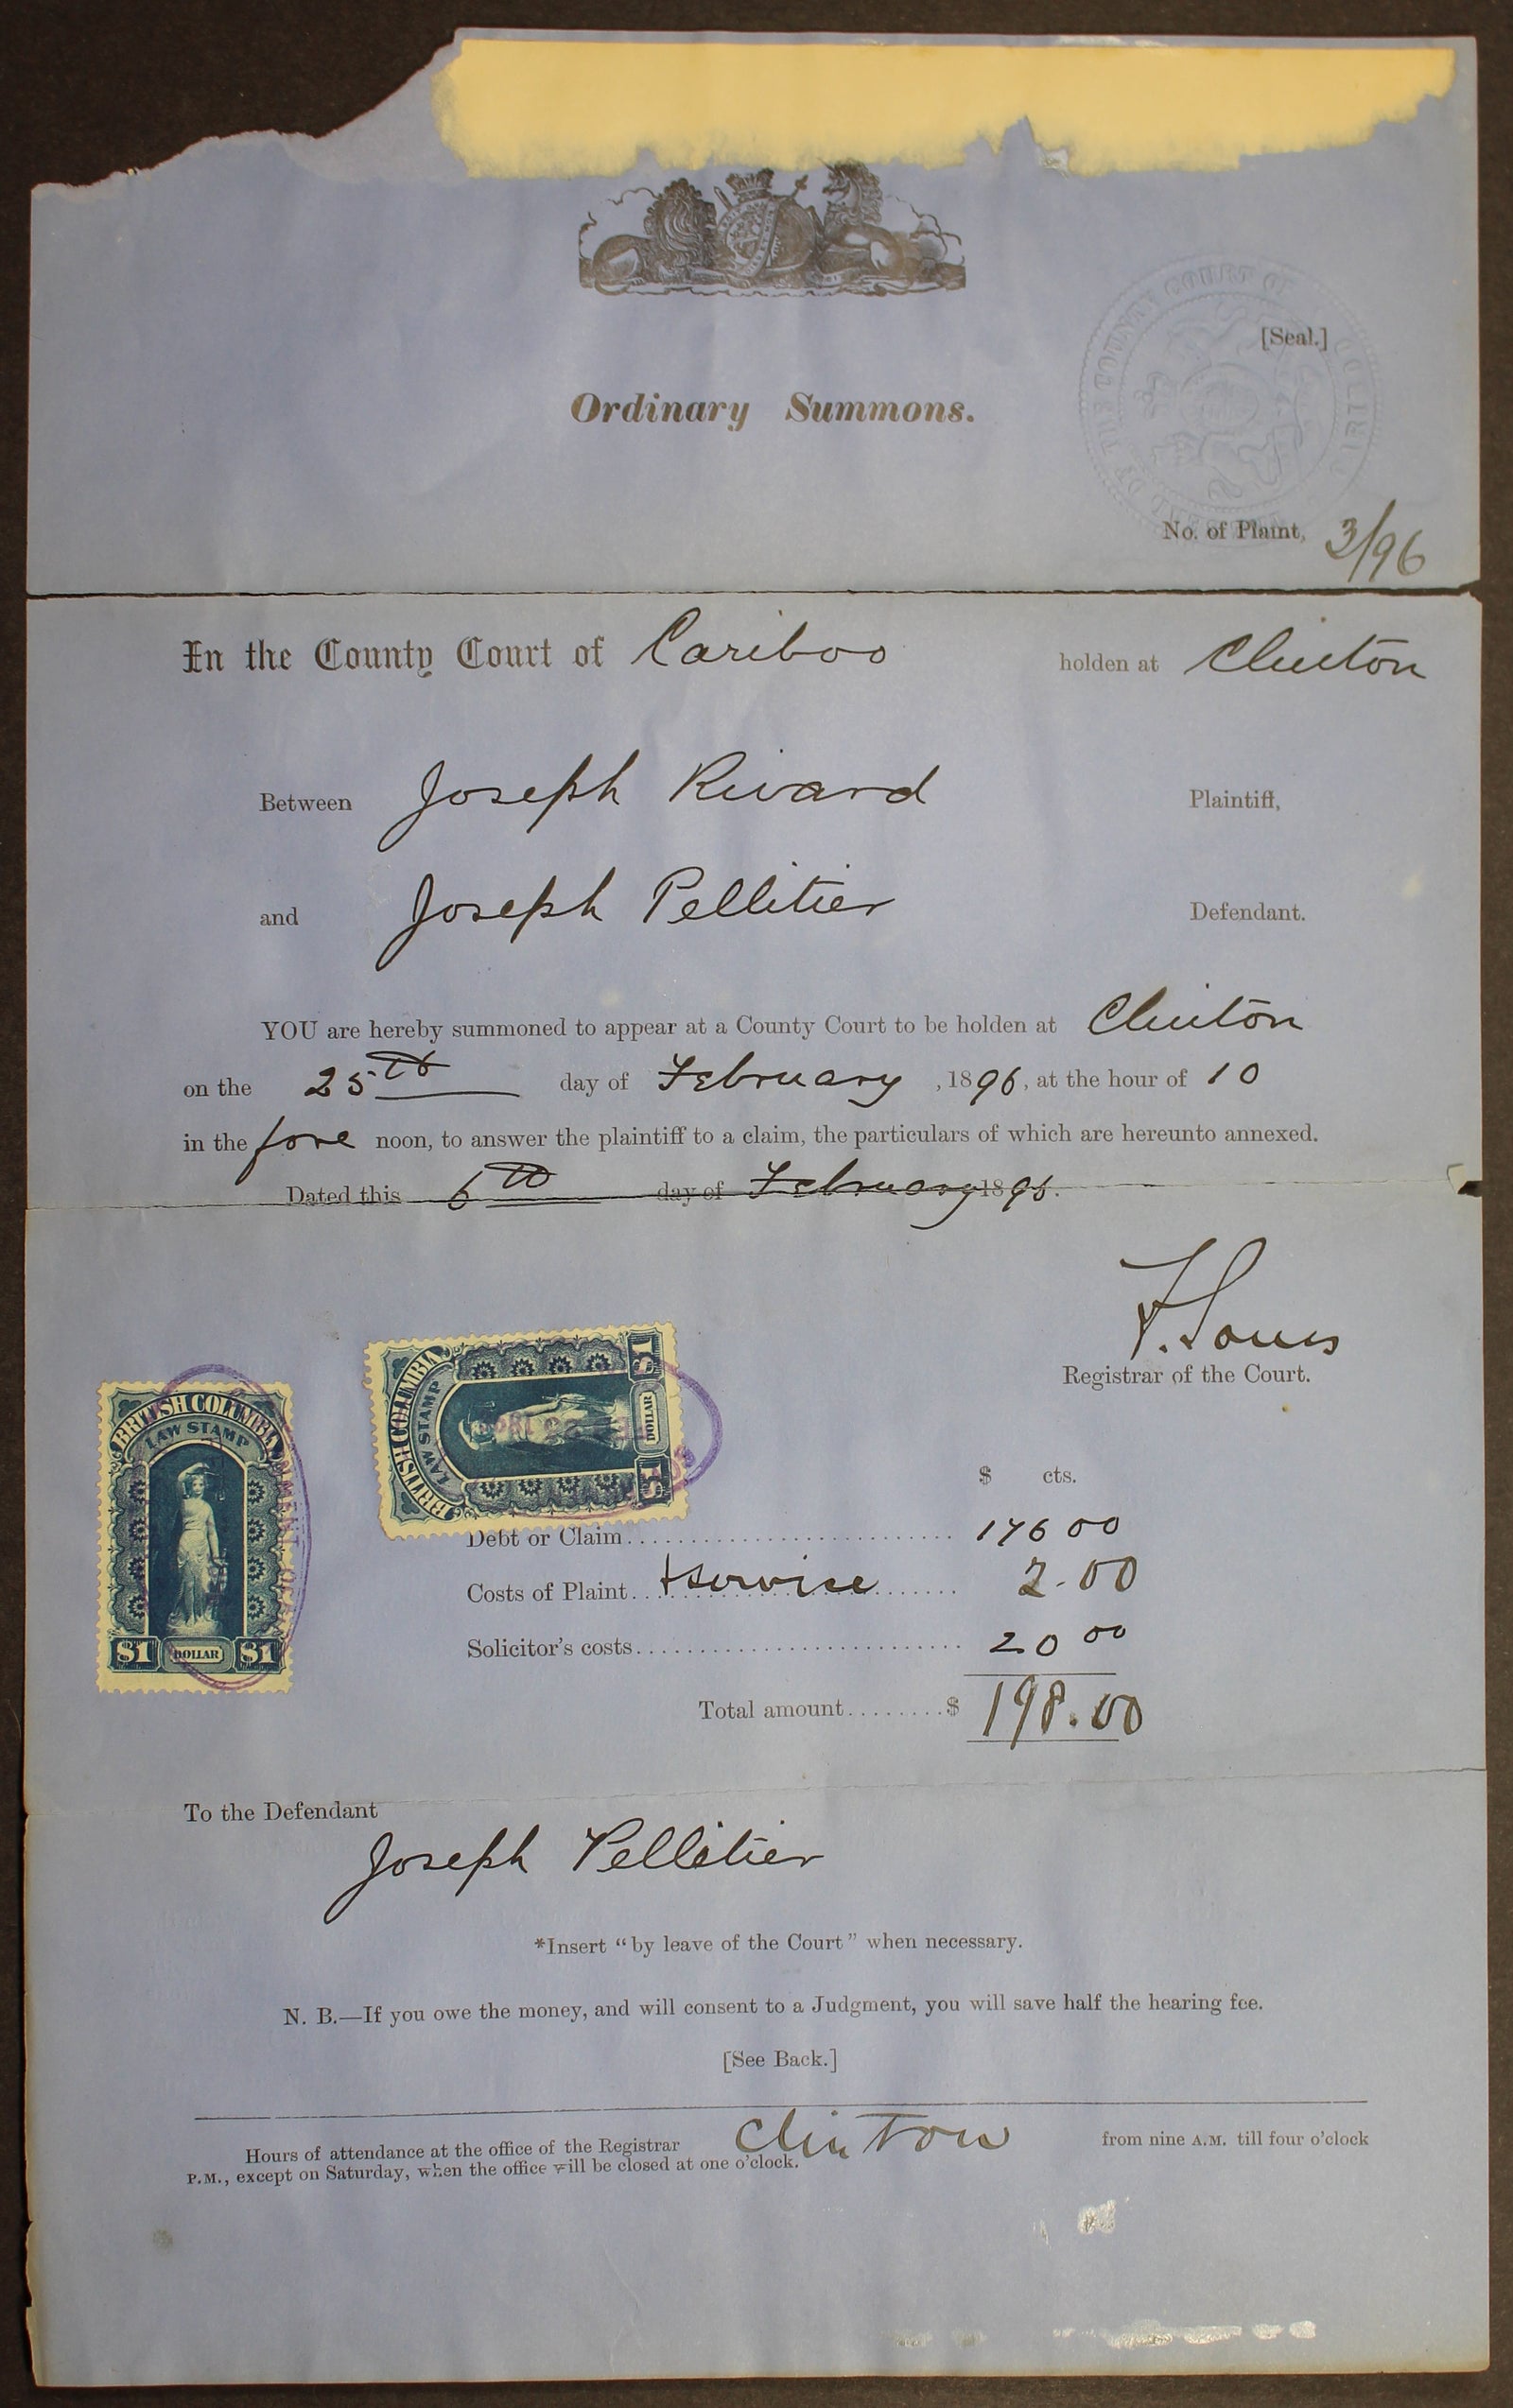 [Seal.]
Ordinary Summons.
No. of Plaint, 3/96
In the County Court of Cariboo holden at Clinton
Between Joseph Rivard Plaintiff,
and Joseph Pellitier Defendant.
YOU are hereby summoned to appear at a County Court to be holden at Clinton
on the 25th day of February, 1896, at the hour of 10
in the fore noon, to answer the plaintiff to a claim, the particulars of which are hereunto annexed.
Dated this 6th day of February 1896.
F. Soues
Registrar of the Court.
BRITISH COLUMBIA
LAW STAMP
$1 DOLLAR $1
BRITISH COLUMBIA
LAW STAMP
$1 DOLLAR $1
$ cts.
Debt or Claim 176 00
Costs of Plaint + service 2.00
Solicitor's costs 20 00
Total amount $ 198.00
To the Defendant
Joseph Pellitier
*Insert "by leave of the Court" when necessary.
N. B.—If you owe the money, and will consent to a Judgment, you will save half the hearing fee.
[See Back.]
Hours of attendance at the office of the Registrar Clinton from nine A.M. till four o'clock
P.M., except on Saturday, when the office will be closed at one o'clock.